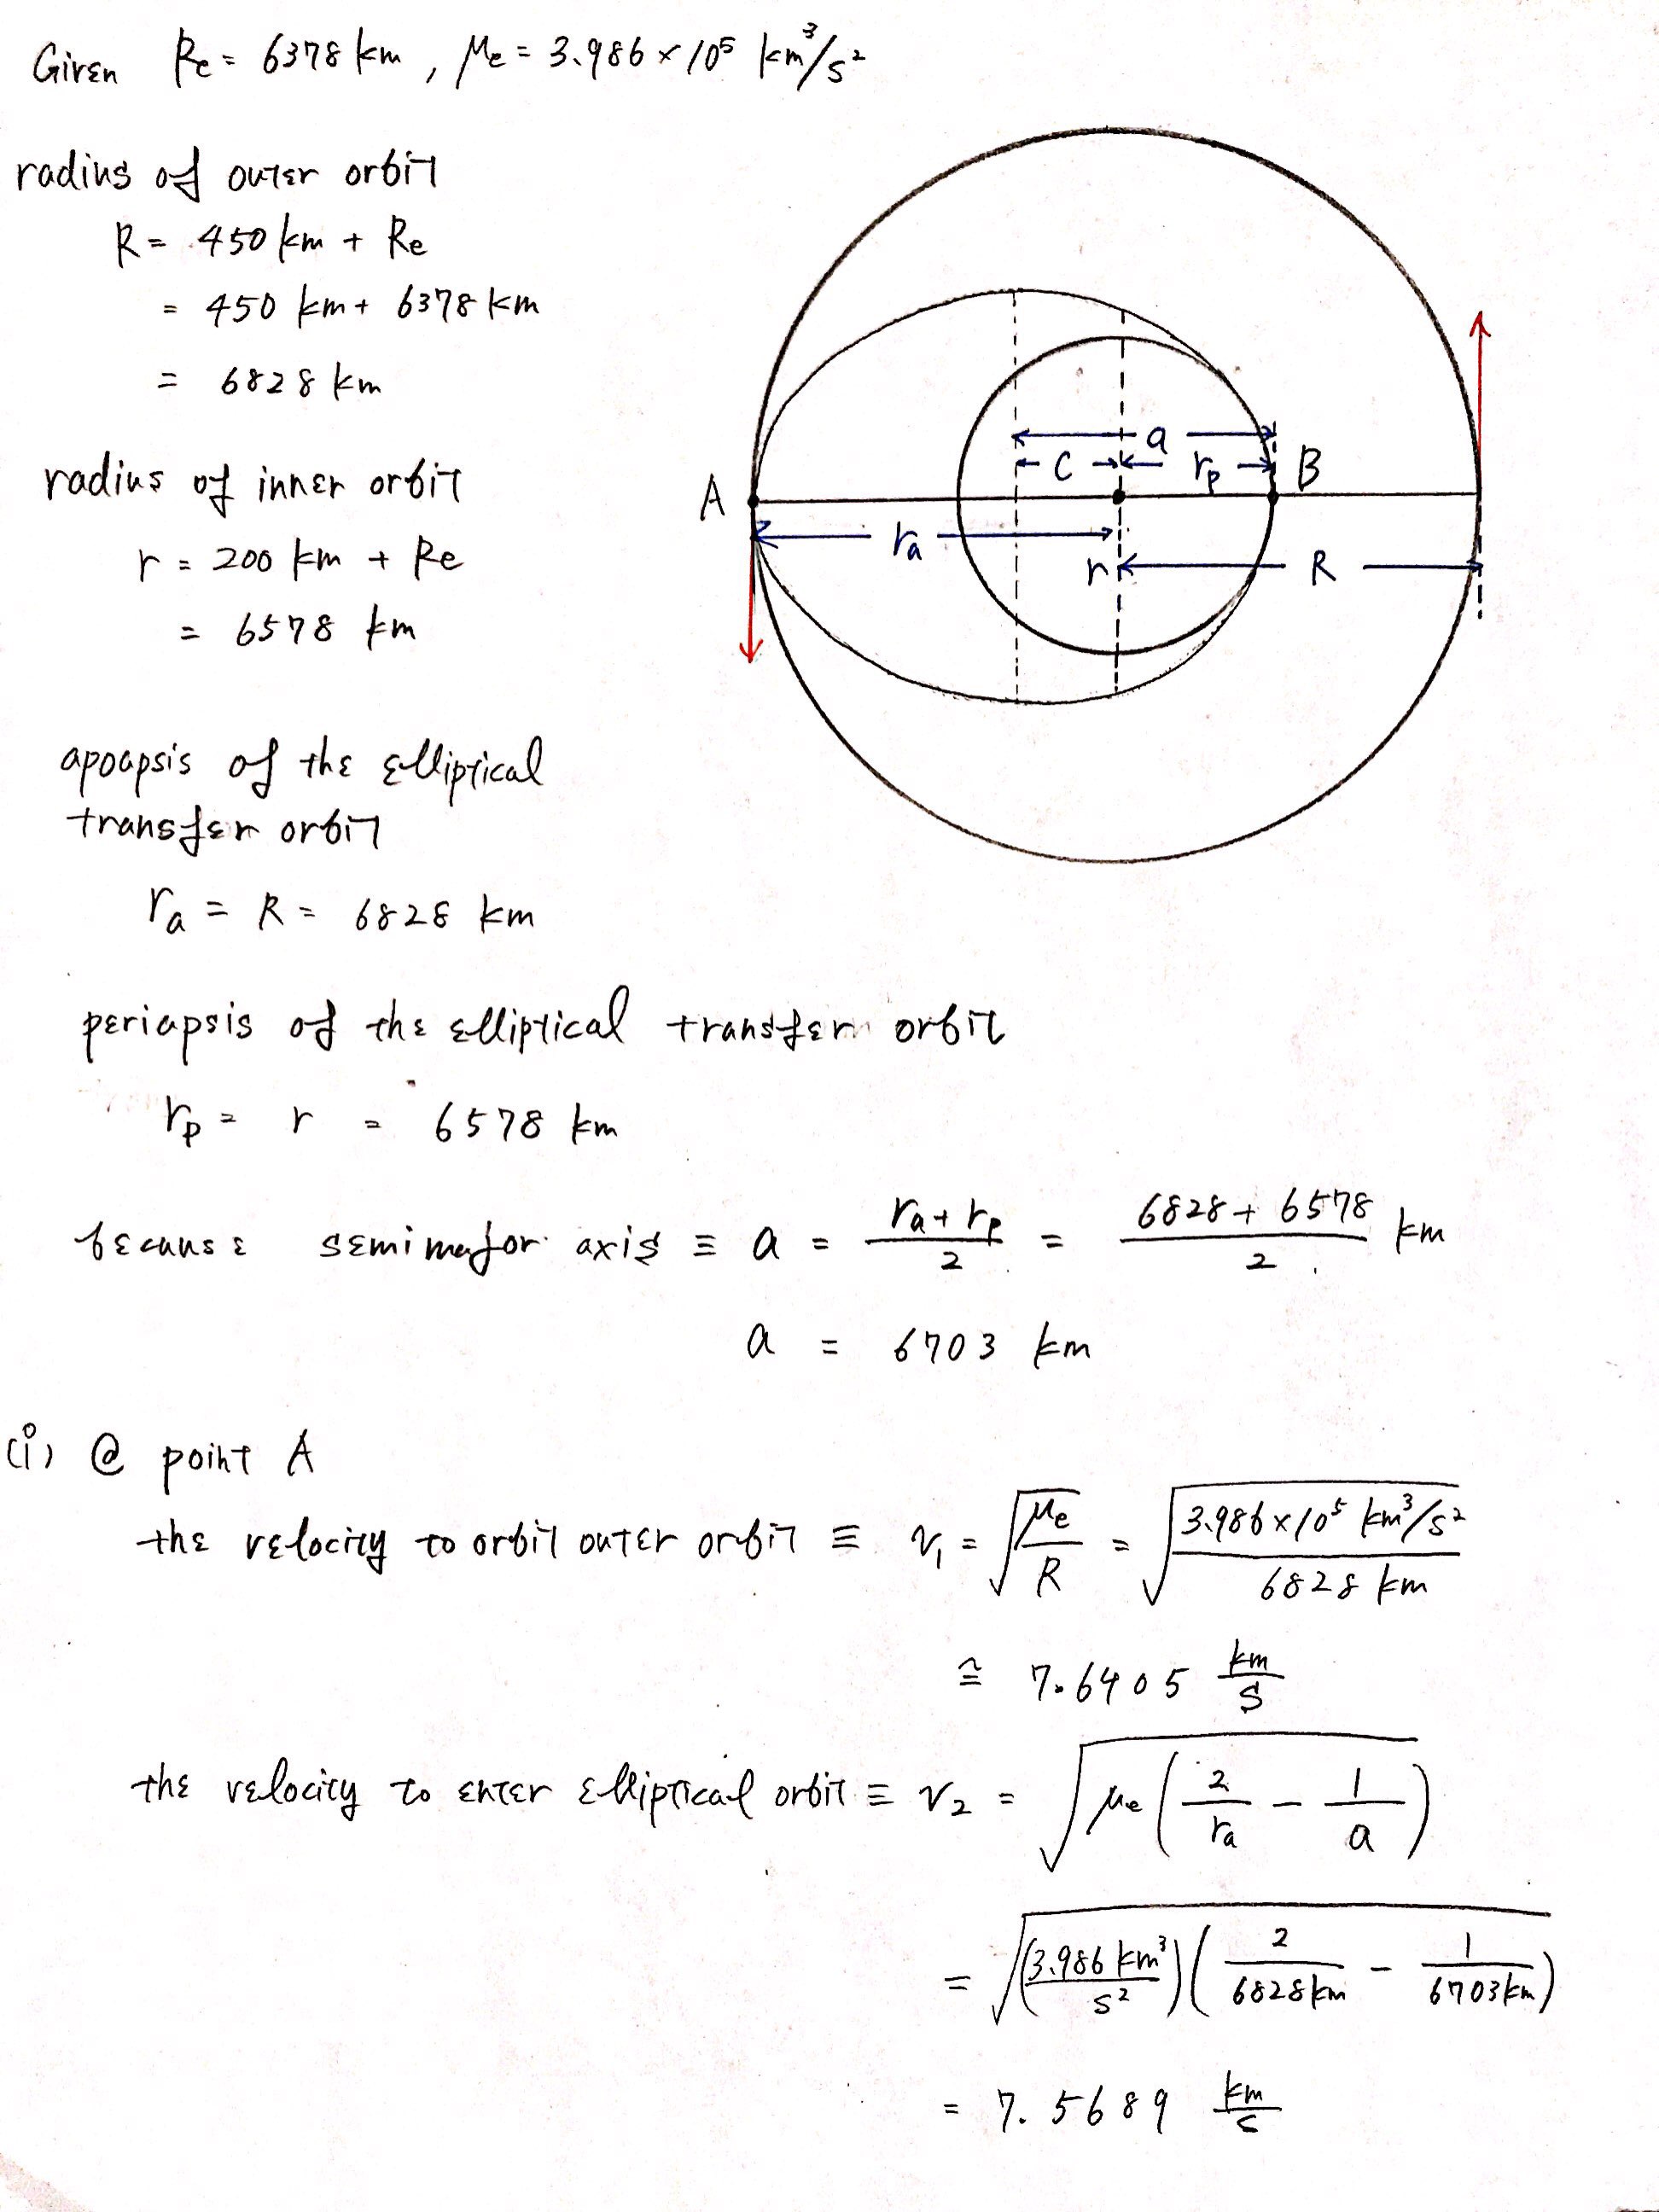 Given Re = 6378 km , μe = 3.986 × 10⁵ km³/s²
radius of outer orbit
R = 450 km + Re
= 450 km + 6378 km
= 6828 km
radius of inner orbit
r = 200 km + Re
= 6578 km
A
B
a
c
rp
ra
r
R
apoapsis of the elliptical
transfer orbit
ra = R = 6828 km
periapsis of the elliptical transfer orbit
rp = r = 6578 km
because semimajor axis ≡ a = (ra + rp)/2 = (6828 + 6578)/2 km
a = 6703 km
(i) @ point A
the velocity to orbit outer orbit ≡ v₁ = √(μe/R) = √(3.986 × 10⁵ km³/s² / 6828 km)
≅ 7.6405 km/s
the velocity to enter elliptical orbit ≡ v₂ = √(μe (2/ra − 1/a))
= √((3.986 km³/s²)(2/6828km − 1/6703km))
= 7.5689 km/s